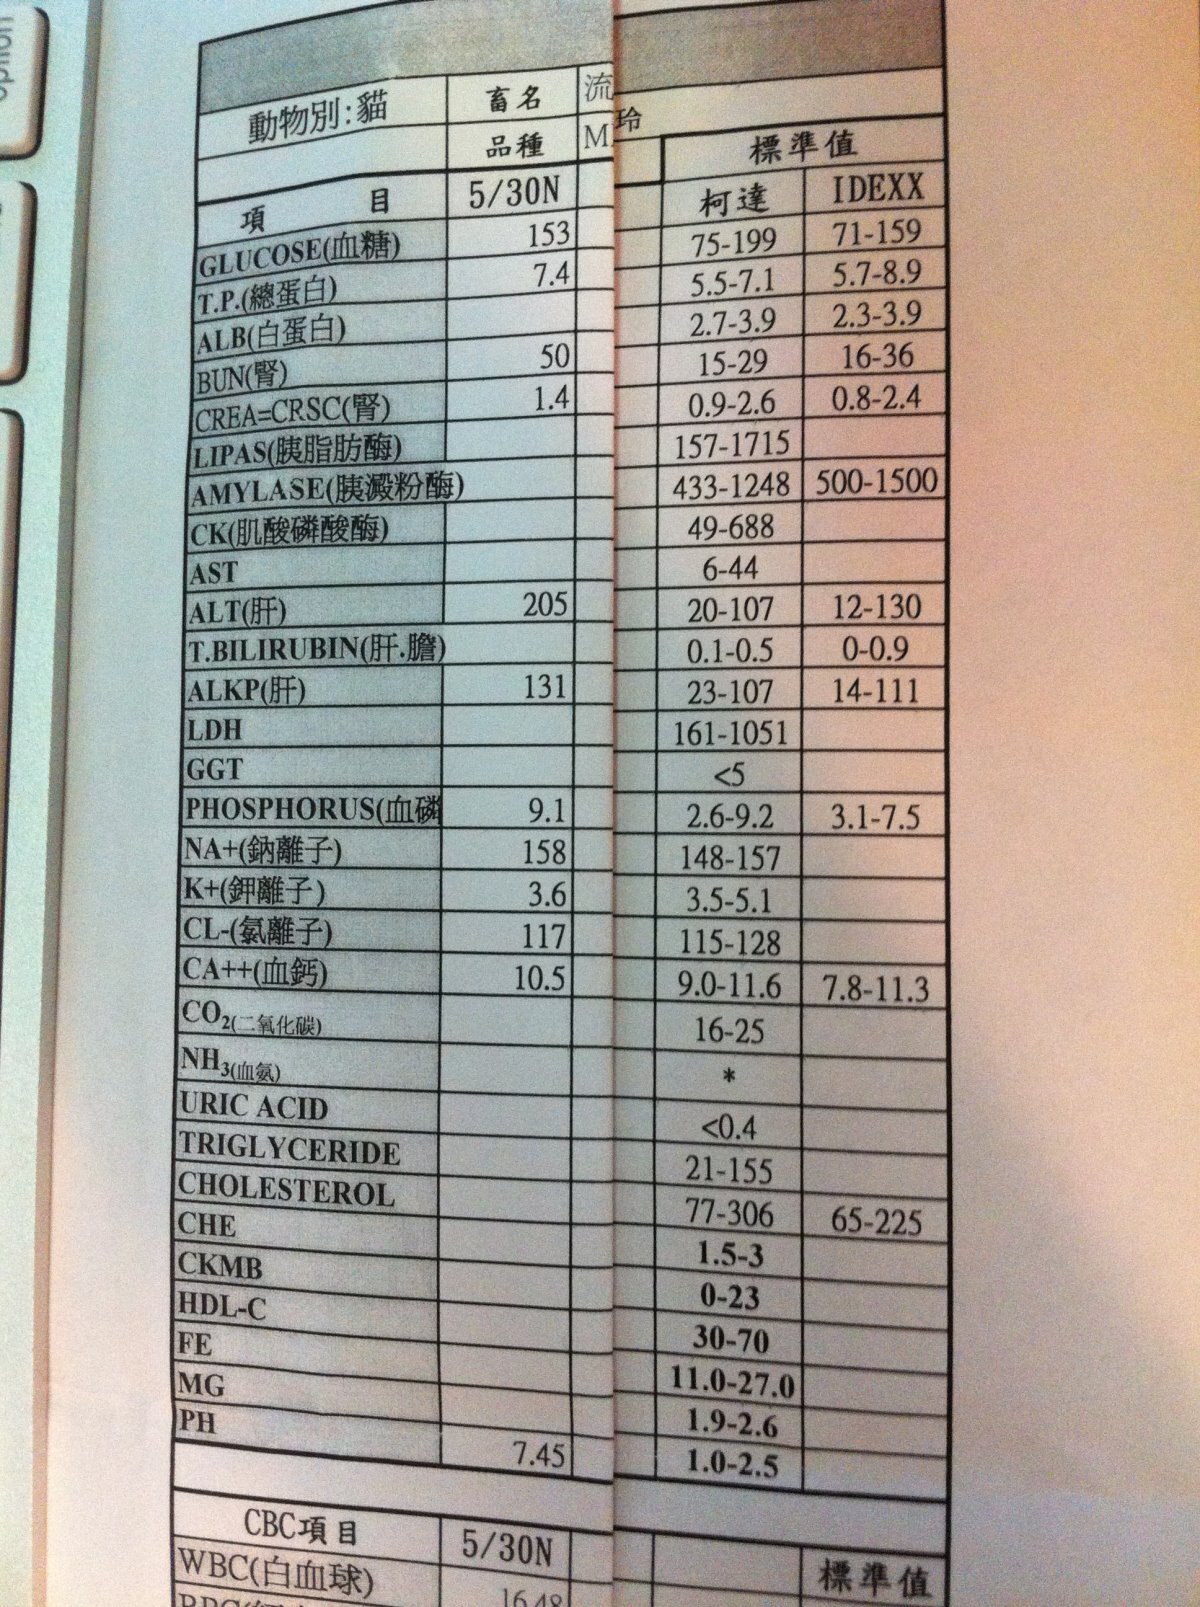 option
動物別:貓 畜名 流
品種 M 玲
標準值
項 目 5/30N 柯達 IDEXX
GLUCOSE(血糖) 153 75-199 71-159
T.P.(總蛋白) 7.4 5.5-7.1 5.7-8.9
ALB(白蛋白) 2.7-3.9 2.3-3.9
BUN(腎) 50 15-29 16-36
CREA=CRSC(腎) 1.4 0.9-2.6 0.8-2.4
LIPAS(胰脂肪酶) 157-1715
AMYLASE(胰澱粉酶) 433-1248 500-1500
CK(肌酸磷酸酶) 49-688
AST 6-44
ALT(肝) 205 20-107 12-130
T.BILIRUBIN(肝.膽) 0.1-0.5 0-0.9
ALKP(肝) 131 23-107 14-111
LDH 161-1051
GGT <5
PHOSPHORUS(血磷 9.1 2.6-9.2 3.1-7.5
NA+(鈉離子) 158 148-157
K+(鉀離子) 3.6 3.5-5.1
CL-(氯離子) 117 115-128
CA++(血鈣) 10.5 9.0-11.6 7.8-11.3
CO2(二氧化碳) 16-25
NH3(血氨) *
URIC ACID <0.4
TRIGLYCERIDE 21-155
CHOLESTEROL 77-306 65-225
CHE 1.5-3
CKMB 0-23
HDL-C 30-70
FE 11.0-27.0
MG 1.9-2.6
PH 7.45 1.0-2.5
CBC項目 5/30N 標準值
WBC(白血球) 16.48